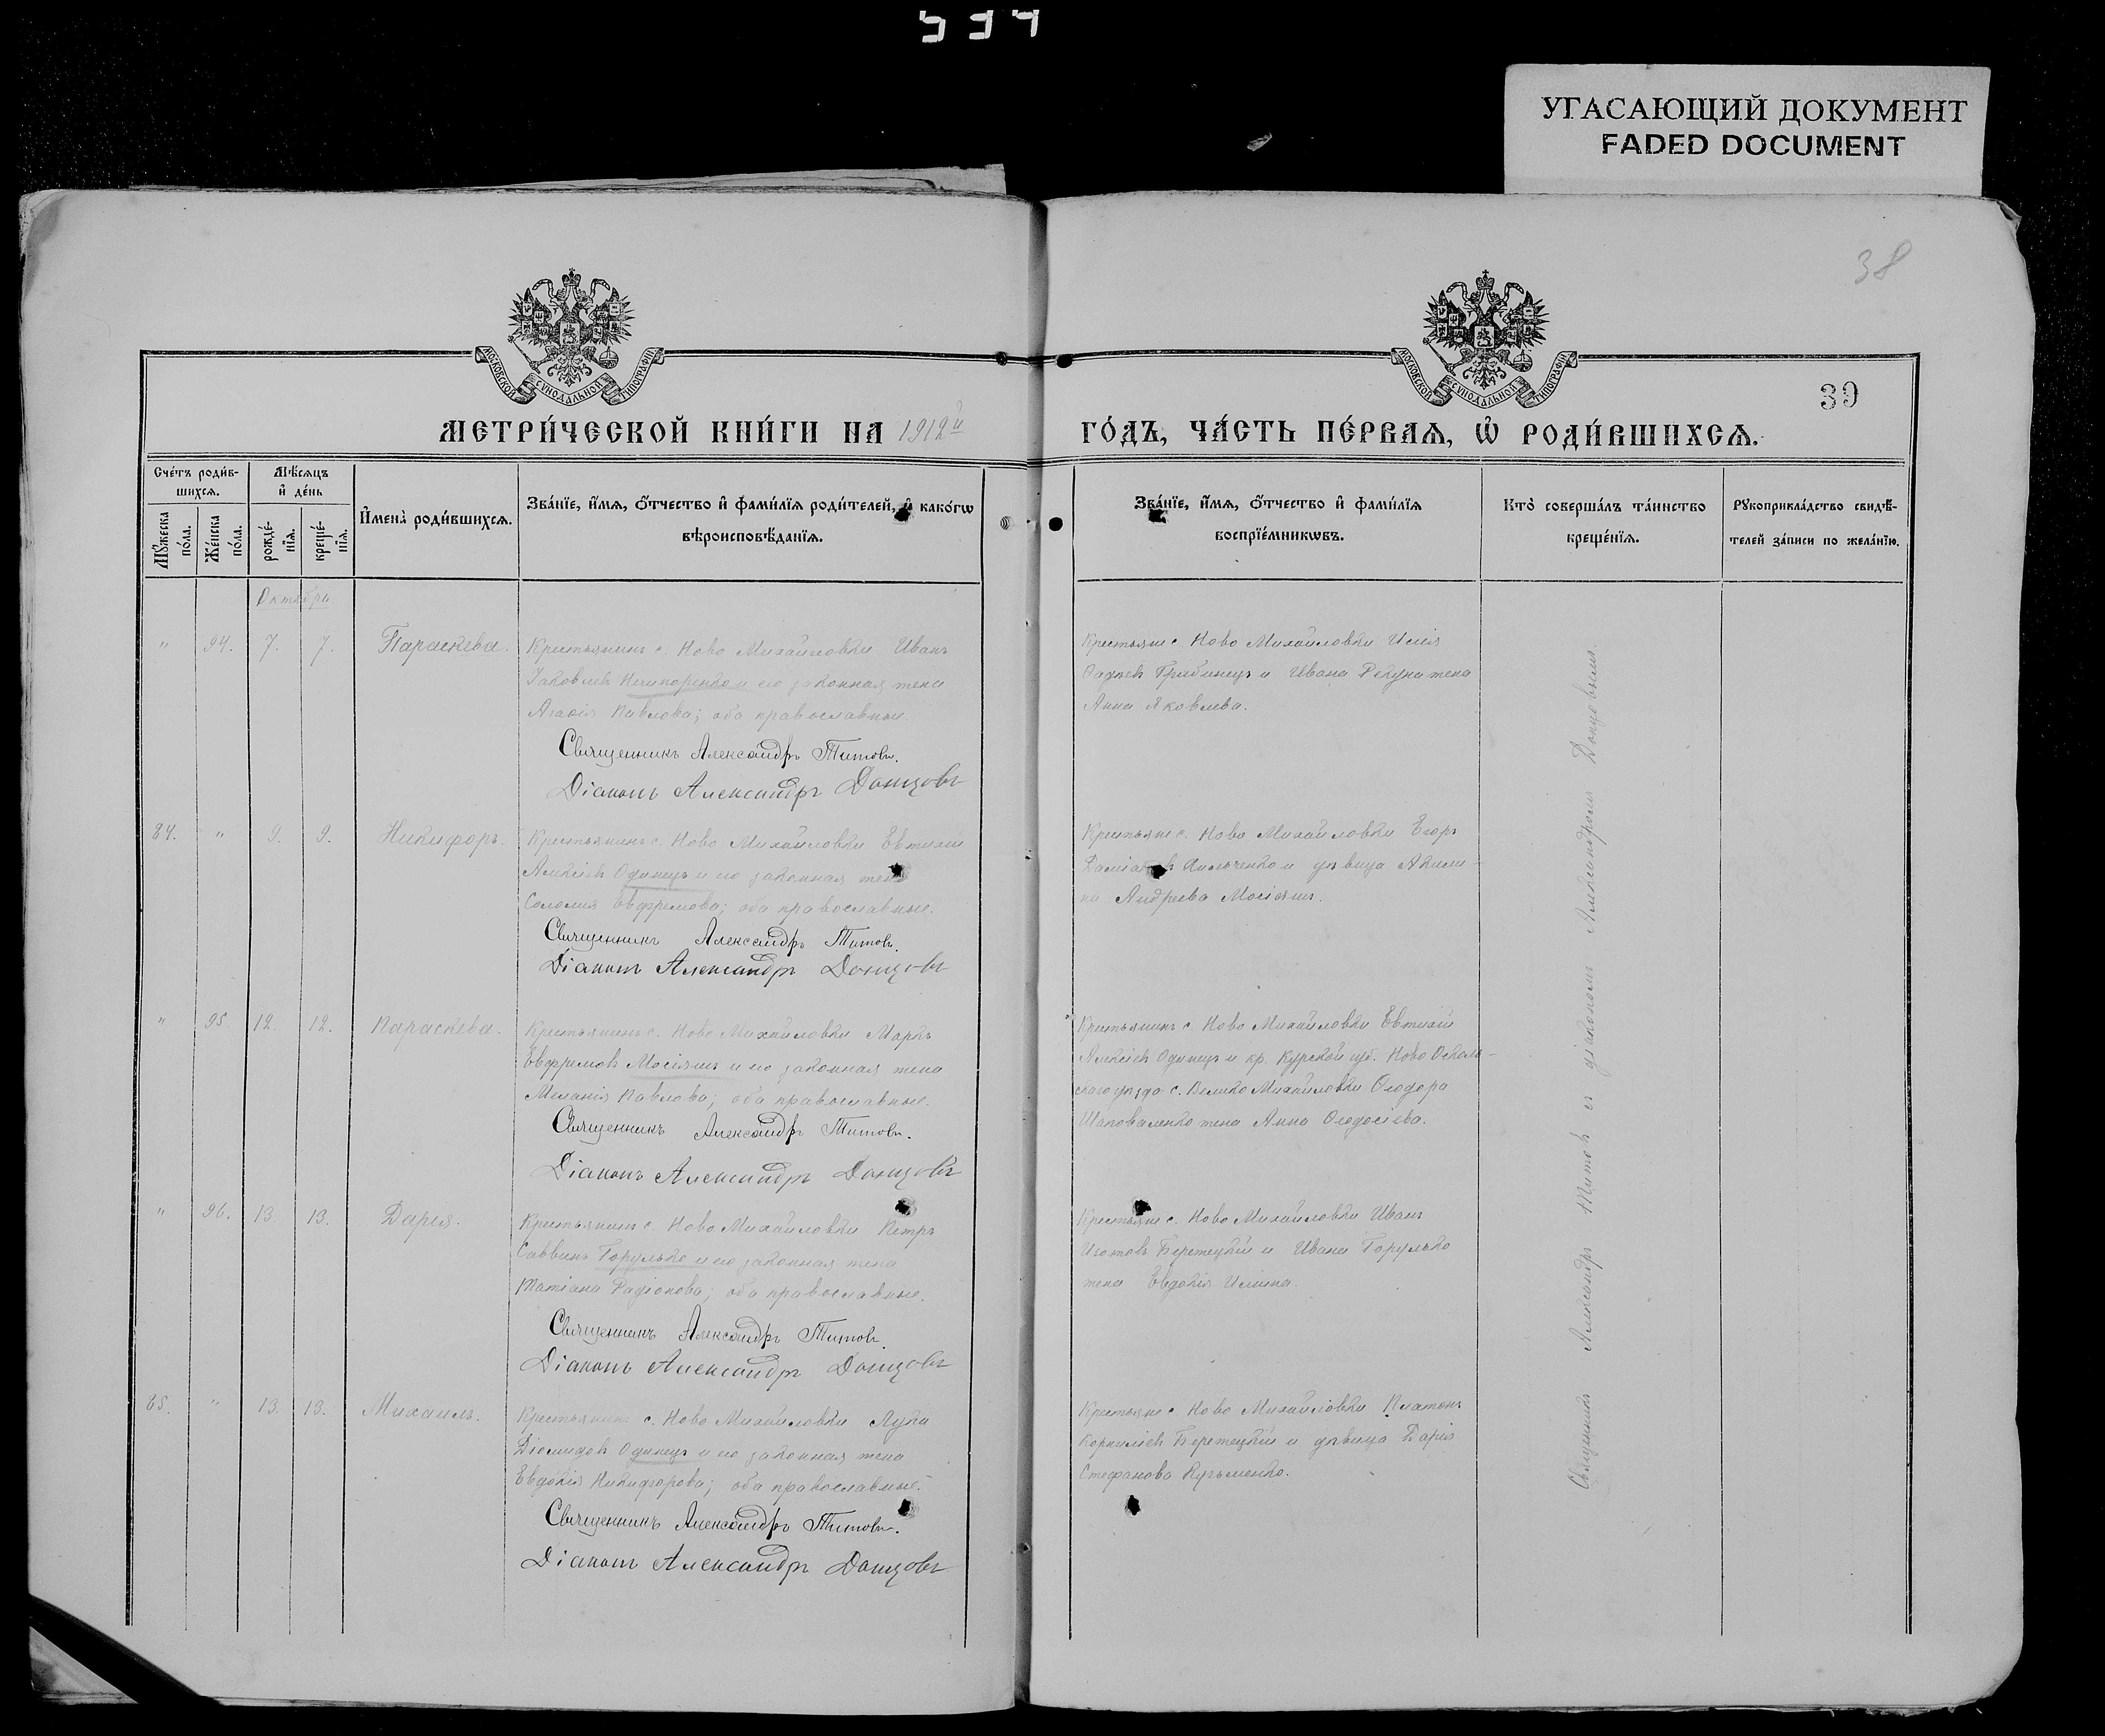 УГАСАЮЩИЙ ДОКУМЕНТ
FADED DOCUMENT
38
МОСКОВСКОЙ СѴНОДАЛЬНОЙ ТИПОГРАФІИ
МОСКОВСКОЙ СѴНОДАЛЬНОЙ ТИПОГРАФІИ
39
МЕТРИ́ЧЕСКОЙ КНИ́ГИ НА 1912й
ГО́ДЪ, ЧА́СТЬ ПЕ́РВАѦ, Ѡ҆ РОДИ́ВШИХСѦ.
Сче́тъ роди́в-
шихсѧ.
Мѣ́сѧцъ
и҆ де́нь
Мꙋ́жеска
по́ла.
Же́нска
по́ла.
рожде́-
нїѧ.
креще́-
нїѧ.
И҆мена̀ роди́вшихсѧ.
Зва́нїе, и҆́мѧ, о҆́тчество и҆ фами́лїѧ роди́телей, и҆ како́гѡ
вѣроисповѣ́данїѧ.
Зва́нїе, и҆́мѧ, о҆́тчество и҆ фами́лїѧ
воспрїе́мникѡвъ.
Кто̀ соверша́лъ та́инство
креще́нїѧ.
Рꙋкоприкла́дство свидѣ́-
телей за́писи по жела́нїю.
Октябрь
" 94. 7. 7. Параскева.
Крестьянинъ с. Ново Михайловки Иванъ
Яковлевъ Ничипоренко и его законная жена
Агафія Павлова; оба православные.
Священникъ Александръ Титовъ.
Діаконъ Александръ Донцовъ
Крестьяне с. Ново Михайловки Илія
Грибинецъ и Ивана Рекуна жена
Анна Яковлева.
84. " 9. 9. Никифоръ.
Крестьянинъ с. Ново Михайловки Евтихій
Алексіевъ Одинецъ и его законная жена
Соломія Евфремова; оба православные.
Священникъ Александръ Титовъ.
Діаконъ Александръ Донцовъ
Крестьяне с. Ново Михайловки Егоръ
и дѣвица Акили-
на Андреева Мосіяшъ.
" 95. 12. 12. Параскева.
Крестьянинъ с. Ново Михайловки Маркъ
Евфремовъ Мосіяшъ и его законная жена
Меланія Павлова; оба православные.
Священникъ Александръ Титовъ.
Діаконъ Александръ Донцовъ
Крестьянинъ с. Ново Михайловки Евтихій
Алексіевъ Одинецъ и кр. Курской губ. Ново Осколь-
скаго уѣзда с. Велико Михайловки Ѳеодора
Шаповаленко жена Анна Ѳеодосіева.
" 96. 13. 13. Дарія.
Крестьянинъ с. Ново Михайловки Петръ
Саввинъ Горулько и его законная жена
Татіана Радіонова; оба православные.
Священникъ Александръ Титовъ.
Діаконъ Александръ Донцовъ
Крестьяне с. Ново Михайловки Иванъ
Изотовъ Бережецкій и Ивана Горулько
жена Евдокія Иліина.
85. " 13. 13. Михаилъ.
Крестьянинъ с. Ново Михайловки Лука
Діомидовъ Одинецъ и его законная жена
Евдокія Никифорова; оба православные.
Священникъ Александръ Титовъ.
Діаконъ Александръ Донцовъ
Крестьяне с. Ново Михайловки Платонъ
Корниліевъ Бережецкій и дѣвица Дарія
Стефанова Кузьменко.
Священникъ Александръ Титовъ съ діакономъ Александромъ Донцовымъ.